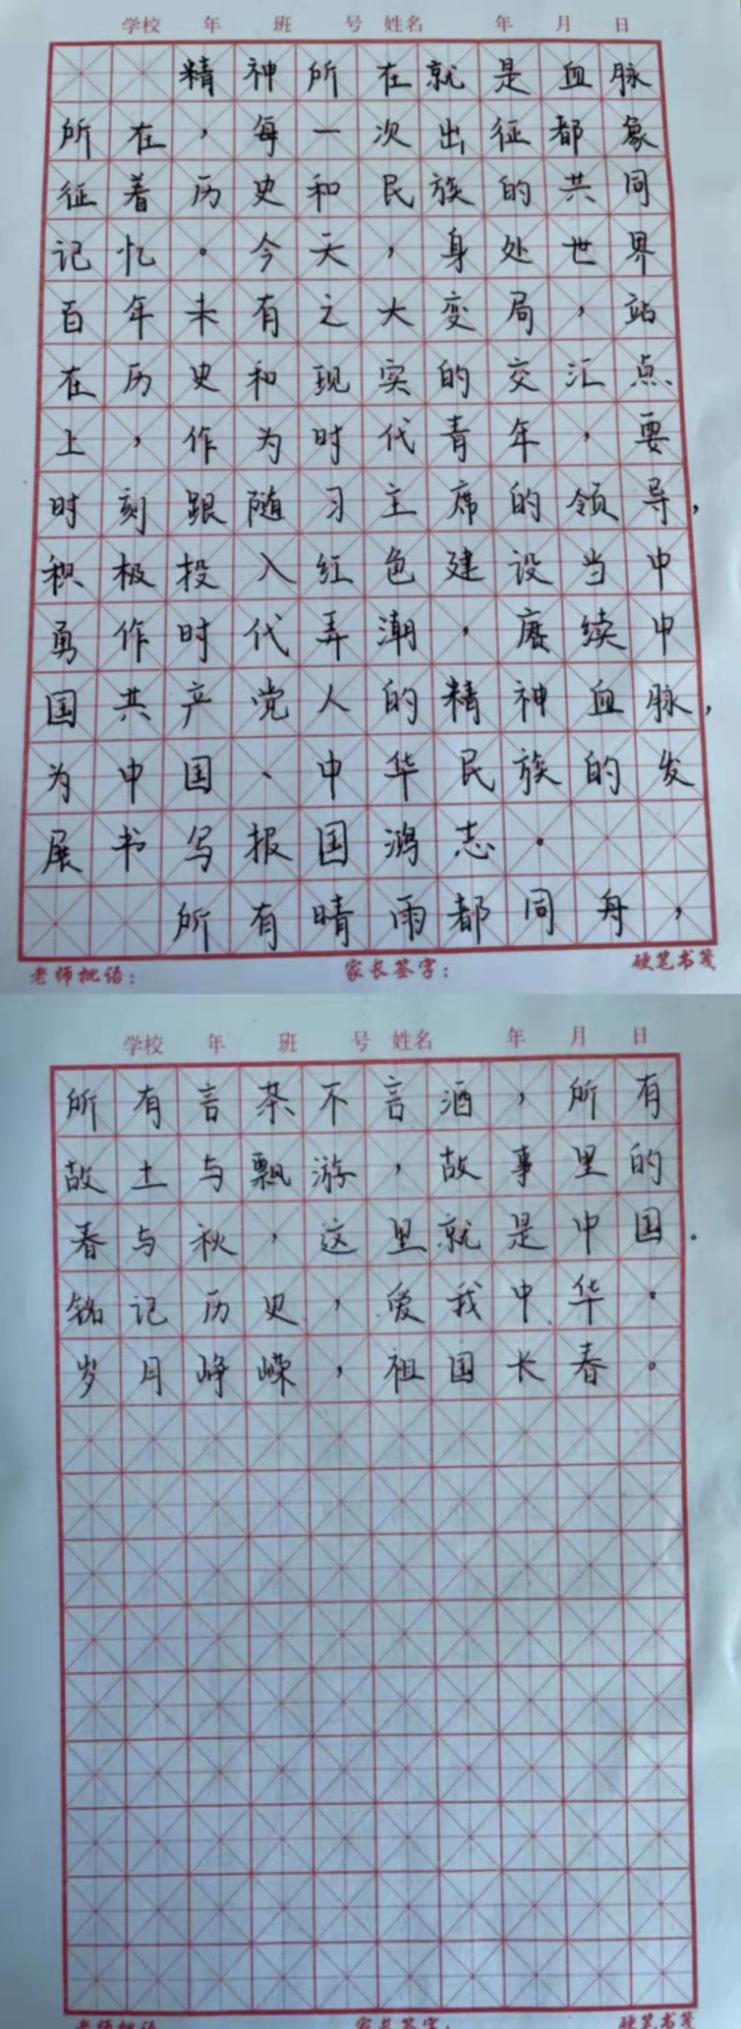 学校 年 班 号 姓名 年 月 日
精神所在就是血脉
所在，每一次出征都象
征着历史和民族的共同
记忆。今天，身处世界
百年未有之大变局，站
在历史和现实的交汇点
上，作为时代青年，要
时刻跟随习主席的领导，
积极投入红色建设当中
勇作时代弄潮，赓续中
国共产党人的精神血脉，
为中国、中华民族的发
展书写报国鸿志。
所有晴雨都同舟，
老师批语： 家长签字： 硬笔书笺
学校 年 班 号 姓名 年 月 日
所有言茶不言酒，所有
故土与飘游，故事里的
春与秋，这里就是中国。
铭记历史，爱我中华。
岁月峥嵘，祖国长春。
老师批语 家长签字： 硬笔书笺